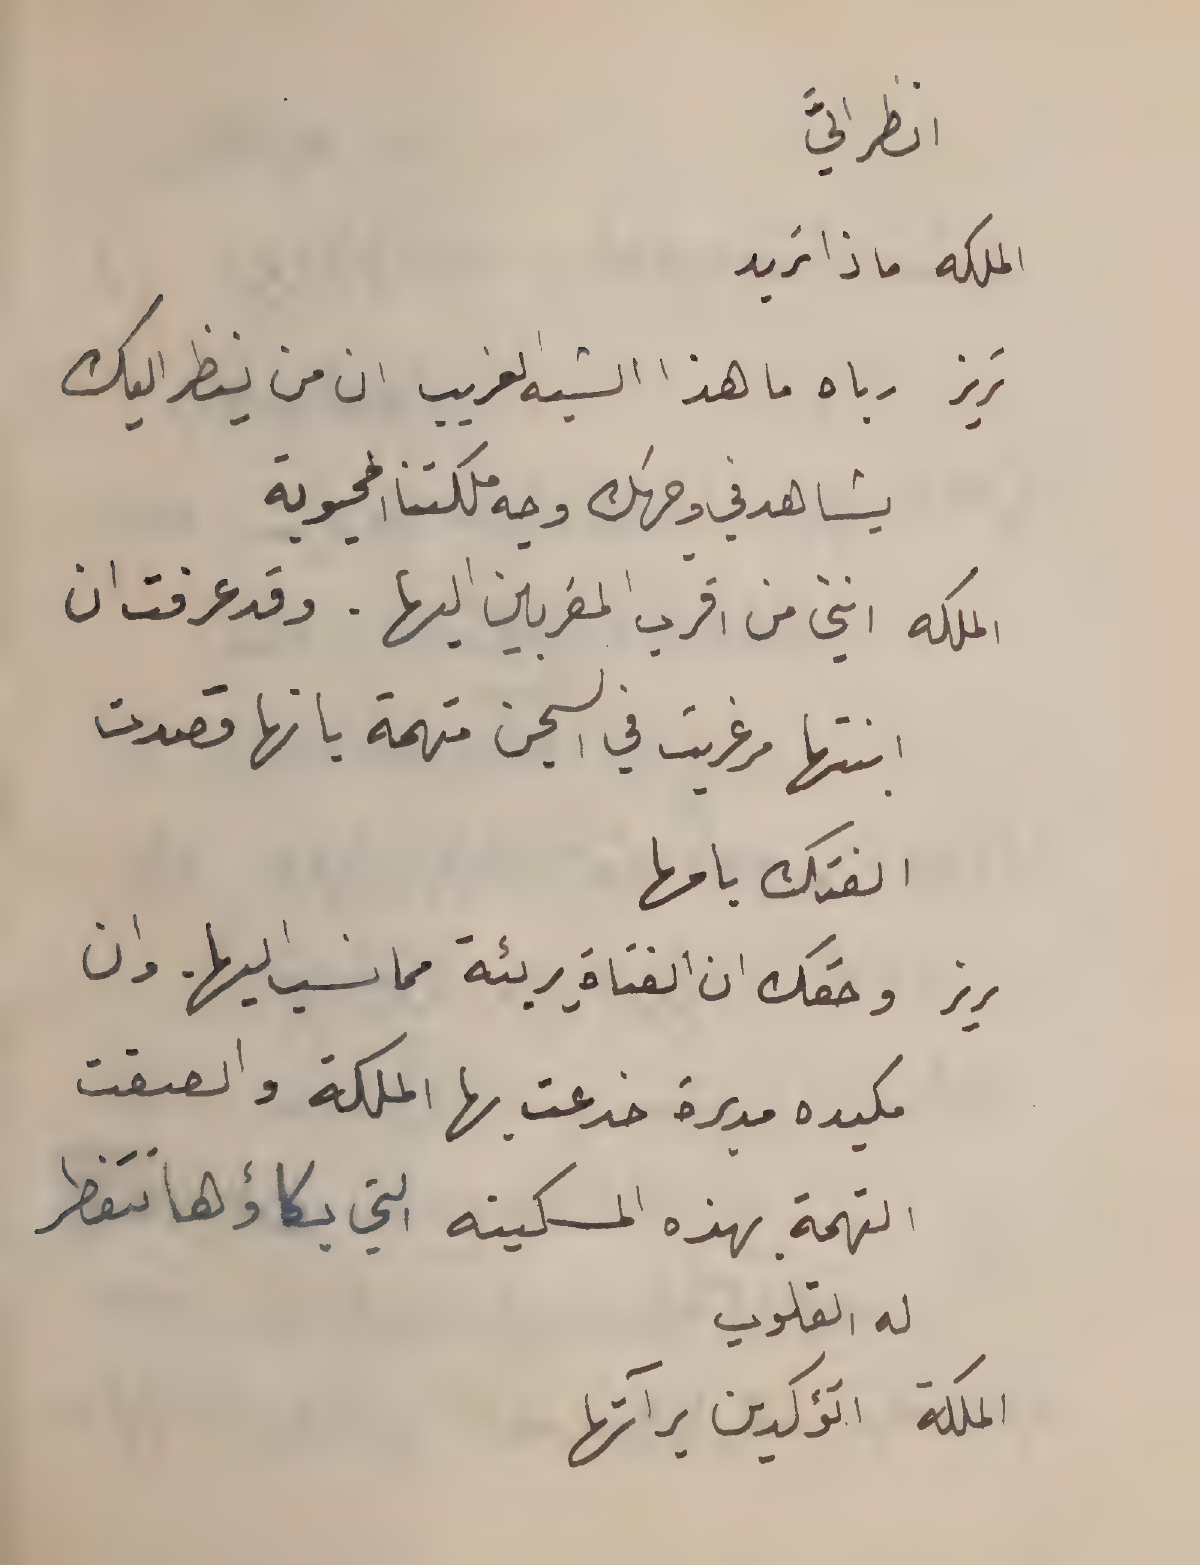 انظر اليَّ
الملكه ماذا تريد
تريز رباه ما هذا الشبه الغريب ان من ينظر اليك
يشاهد في وجهك وجه ملكتنا المحبوبة
الملكه انني من اقرب المقربين اليها . وقد عرفت ان
ابنتها مرغريت في السجن متهمة بانها قصدت
الفتك بامها
تريز وحقك ان الفتاة بريئة مما نسب اليها . وان
مكيده مدبرة خدعت بها الملكة والصقت
التهمة بهذه المسكينه التي بكاؤها تتفطر
له القلوب
الملكة اتؤكدين برآتها